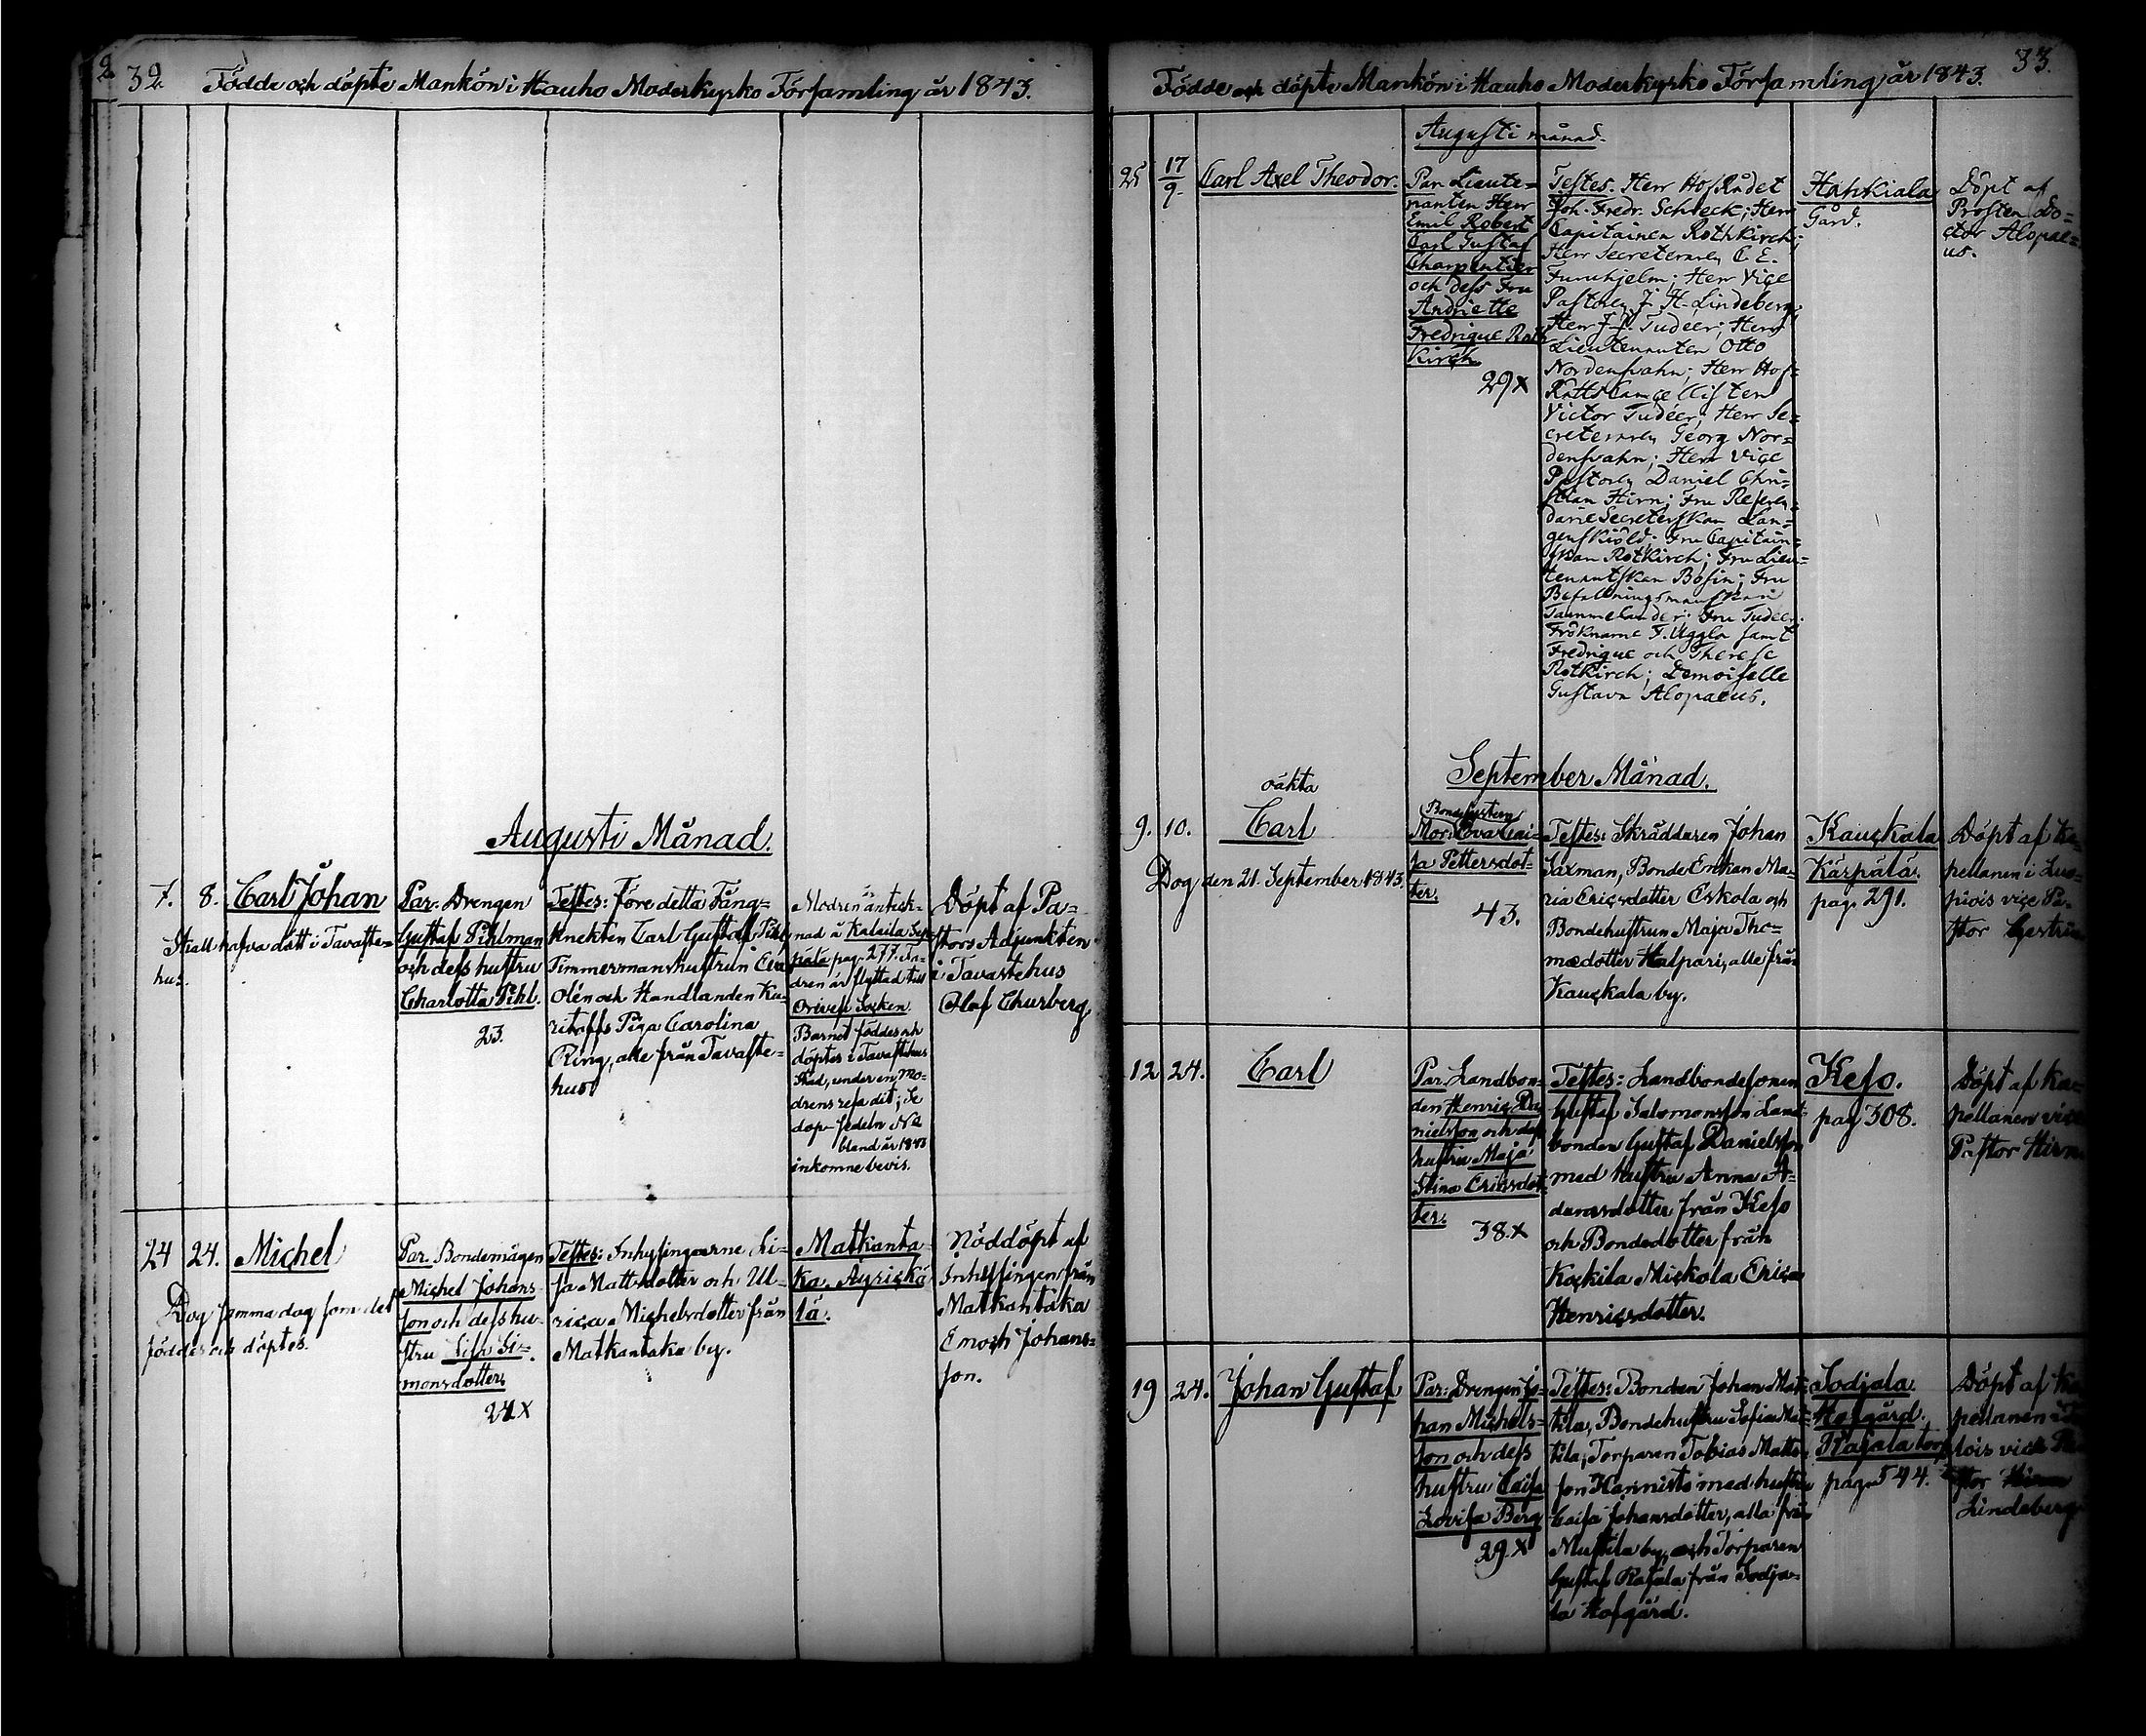 32. Födde och döpte Mankön i Hauho Moderkyrko Församling år 1843.
Augusti Månad.
7. 8. Carl Johan
Skall hafva dödt i Tavaste=
hus.
Par: Drengen
Gustaf Pihlman
och dess hustru
Charlotta Pihl.
23.
Testes: Före detta Fång=
knekten Carl Gustaf Pihl,
Timmermanshustrun Eva
Olén och Handlanden Ku=
ritoffs Piga Carolina
Ring, alle från Tavaste=
hus.
Modren anteck=
nad å Kalaila Sep=
pälä pag. 277. Fa=
dren är flyttad till
Orivesi Socken
Barnet föddes och
döptes i Tavastehus
Stad, under en Mo=
drens resa dit; Se
dop-sedeln No
bland år 1843
inkomne bevis.
Döpt af Pa=
stors Adjunkten
i Tavastehus
Olof Churberg
24 24. Michel
Dog samma dag som det
föddes och döptes.
Par. Bondemågen
Michel Johans=
son och dess hu=
stru Lisa Si=
monsdotter.
24 X
Testes: Inhysingarne Li=
sa Mattsdotter och Ul=
rica Michelsdotter från
Matkantaka by.
Matkanta
ka Äyrickä
lä.
Nöddöpt af
Inhysingen från
Matkantaka
Enoch Johans=
son.
Födde och döpte Mankön i Hauho Moderkyrko Församling år 1843. 33.
Augusti månad.
25 17/9. Carl Axel Theodor.
Par. Lieute=
nanten Herr
Emil Robert
Carl Gustaf
Charpentier
och dess Fru
Andriette
Fredrique Roth
Kirch.
29 X
Testes. Herr HofRådet
Joh. Fredr. Schreck; Herr
Capitainen Rothkirch;
Herr Secreteraren C. E.
Furuhjelm; Herr Vice
Pastorn J. H. Lindeberg;
Herr J. J. Tudeer; Herr
Lieutenanten Otto
Nordensvahn; Herr Hof=
Rätts Cancellisten
Victor Tudéer; Herr Se=
creteraren Georg Nor=
densvahn; Herr Vice
Pastorn Daniel Chri=
stian Hirn; Fru Referen=
darie Secreterskan Lan=
genskiöld; Fru Capitain=
skan Rotkirch; Fru Lieu=
tenantskan Bosin; Fru
Befallningsmanskan
Tammelander; Fru Tudeer.
Fröknarne F. Uggla samt
Fredrique och Therese
Rotkirch; Demoiselle
Gustava Alopaeus.
Hahkiala
Gård.
Döpt af
Prosten Do=
ctor Alopae=
us.
September Månad.
9. 10. oäkta
Carl
Dog den 21. September 1843.
Mor: Eva Cai=
sa Pettersdot=
ter.
43.
Testes: Skräddaren Johan
Saxman, Bonde Enkan Ma=
ria Ericsdotter Eskola och
Bondehustrun Maja Tho=
mædotter Halpari, alle från
Kauckala by.
Kauckala
Kärpälä.
pag. 291.
Döpt af Ka=
pellanen i Luo=
piois vice Pa=
stor
12 24. Carl
Par. Landbon=
den Henric Da=
nielsson och dess
hustru Maja
Stina Ericsdot=
ter.
38. X
Testes: Landbondesonen
Gustaf Salomonsson Land=
bonden Gustaf Danielsson
med hustru Anna A=
damsdotter från Keso
och Bondedotter från
Kockila Mickola Erica
Henricsdotter.
Keso.
pag 308.
Döpt af Ka=
pellanen vice
Pastor Hirn
19 24. Johan Gustaf
Par: Drengen Jo=
han Michels=
son och dess
hustru Caisa
Lovisa Berg
29. X
Testes: Bonden Johan Mat=
tila, Bondehustru Sofia Mat=
tila, Torparen Tobias Matts=
son Hannisto med hustru
Caisa Johansdotter, alla från
Mustila by, och Torparen
Gustaf Rasala från Sodja=
la Hofgård.
Sodjala
Hofgård.
Rasala torp
pag. 544.
Döpt af Ka=
pellanen i Tu=
lois vice Pa=
stor
Lindeberg